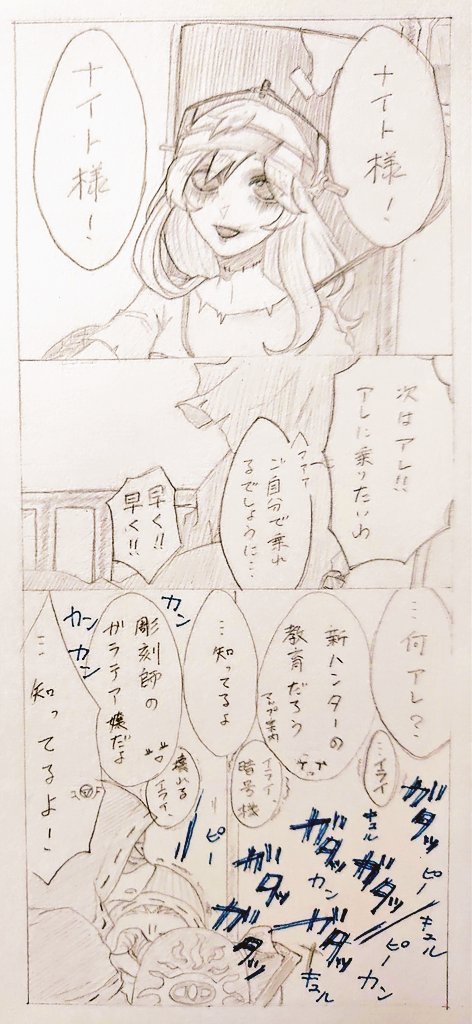 ナイト様！
ナイト様！
次はアレ!!
アレに乗りたいわ
ご自分で乗れ
るでしょうに…
早く!!
早く!!
…何アレ？
新ハンターの
教育だろう
マップ案内
…知ってるよ
彫刻師の
ガラテア嬢だよ
…知ってるよ！
カン
カン
カン
…イライ
イライ、
暗号機
壊れる
イライ
ピー
ガタッ
キュル
ガタッ
ガタッ
ピー
ガタッ
カン
キュル
ガタッ
ピー
ガタッ
カン
キュル